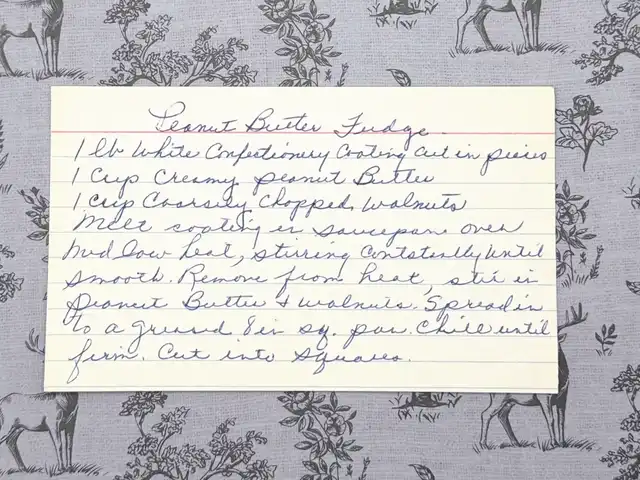 Peanut Butter Fudge.
1 lb White Confectionery Coating cut in pieces
1 Cup Creamy peanut Butter
1 cup Coarsely Chopped Walnuts
Melt coating in saucepan over
Med low heat, stirring Contstantly until
smooth. Remove from heat, stir in
Peanut Butter & walnuts. Spread in
to a greased 8 in sq. pan. Chill until
firm. Cut into squares.